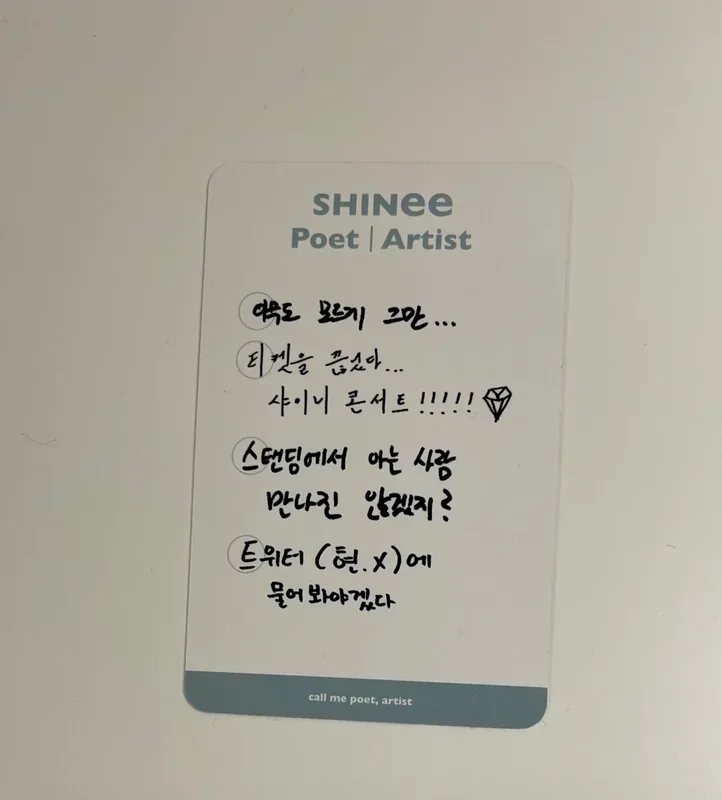 SHINee
Poet | Artist
아무도 모르게 그만...
티켓을 끊었다...
샤이니 콘서트 !!!!!
스탠딩에서 아는 사람
만나진 않겠지?
트위터 (현.X)에
물어봐야겠다
call me poet, artist